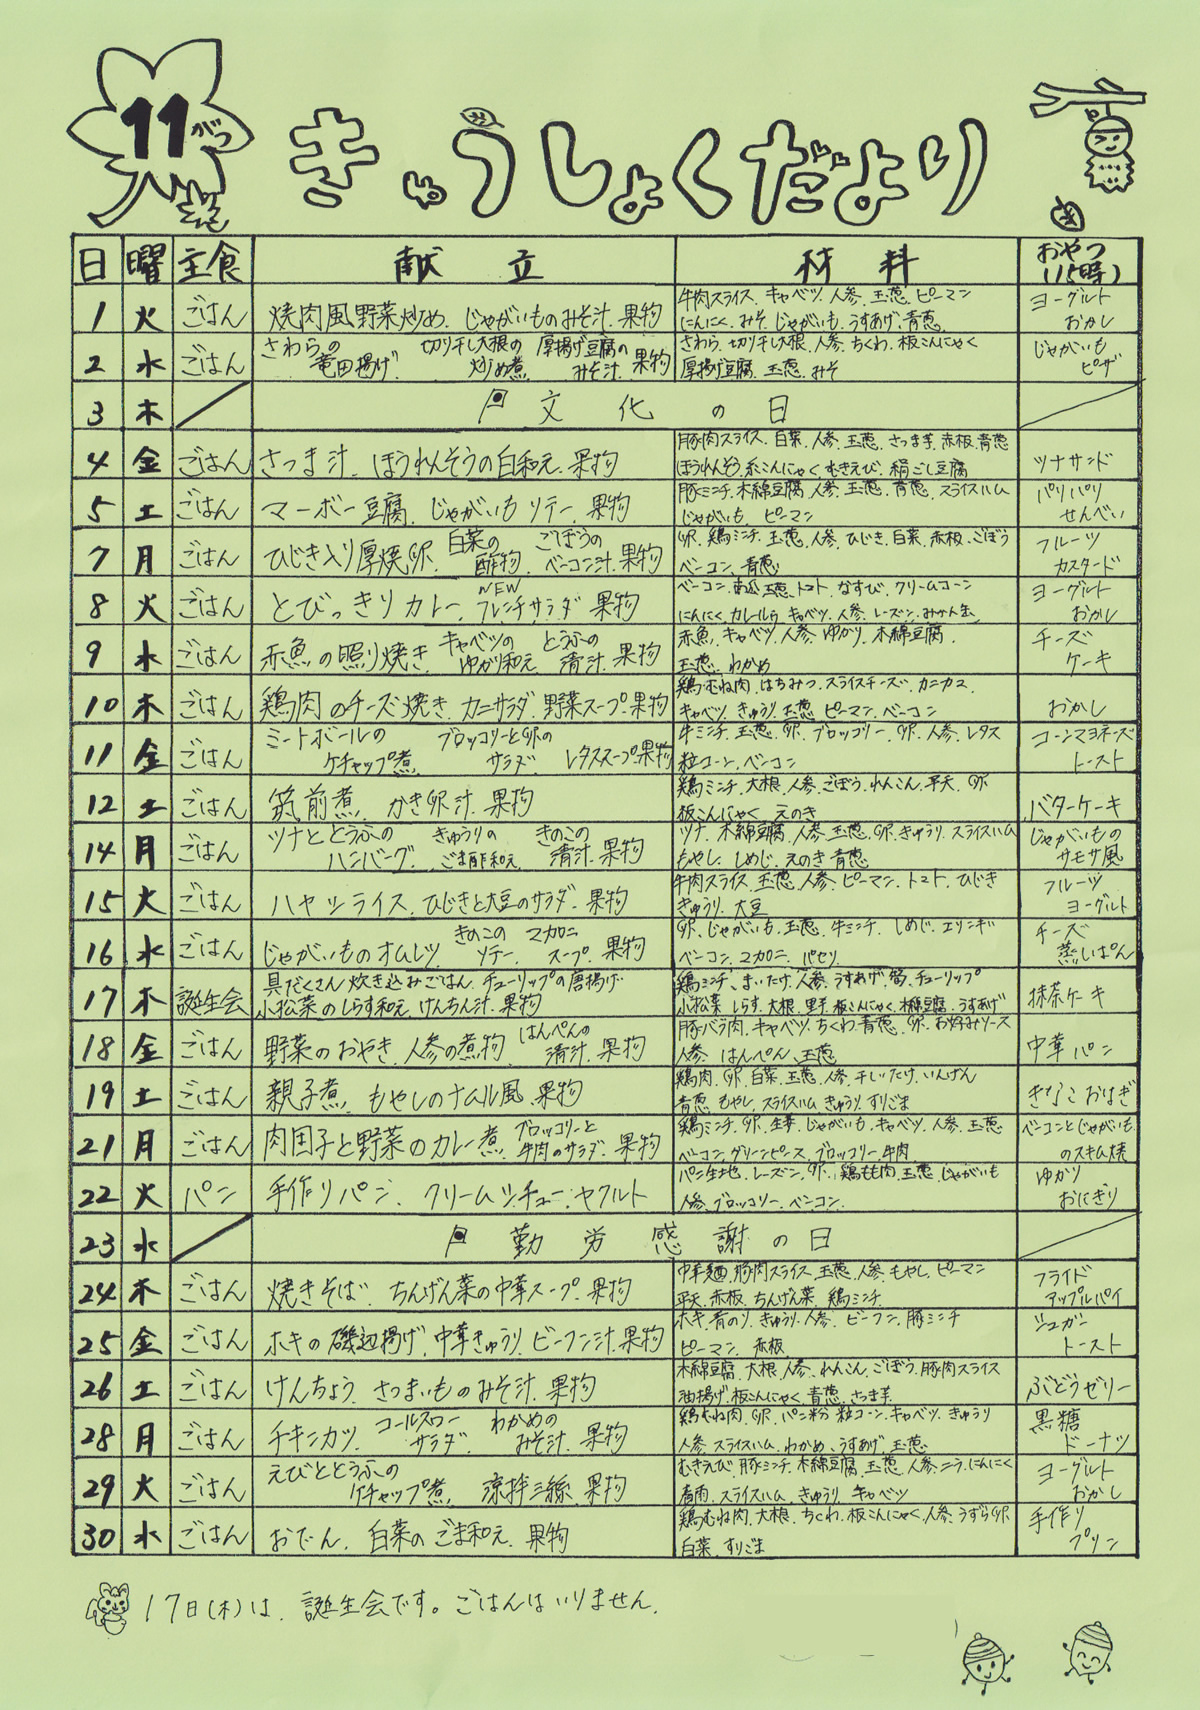 11がつ
きゅうしょくだより
日 曜 主食 献立 材料 おやつ(15時)
1 火 ごはん 焼肉風野菜炒め、じゃがいものみそ汁、果物 牛肉スライス、キャベツ、人参、玉葱、ピーマン
にんにく、みそ、じゃがいも、うすあげ、青葱 ヨーグルト おかし
2 水 ごはん さわらの竜田揚げ 切り干し大根の炒め煮 厚揚げ豆腐のみそ汁、果物 さわら、切り干し大根、人参、ちくわ、板こんにゃく
厚揚げ豆腐、玉葱、みそ じゃがいもピザ
3 木 文化の日
4 金 ごはん さつま汁、ほうれんそうの白和え、果物 豚肉スライス、白菜、人参、玉葱、さつま芋、赤板、青葱
ほうれんそう、糸こんにゃく、むきえび、絹ごし豆腐 ツナサンド
5 土 ごはん マーボー豆腐、じゃがいもソテー、果物 豚ミンチ、木綿豆腐、人参、玉葱、青葱、スライスハム
じゃがいも、ピーマン パリパリせんべい
7 月 ごはん ひじき入り厚焼卵、白菜の酢物 ごぼうのベーコン汁、果物 卵、鶏ミンチ、玉葱、人参、ひじき、白菜、赤板、ごぼう
ベーコン、青葱 フルーツカスタード
8 火 ごはん とびっきりカレー、NEWフレンチサラダ、果物 ベーコン、南瓜、玉葱、トマト、なすび、クリームコーン
にんにく、カレールウ、キャベツ、人参、レーズン、みかん缶 ヨーグルト おかし
9 水 ごはん 赤魚の照り焼き キャベツのゆかり和え とうふの清汁、果物 赤魚、キャベツ、人参、ゆかり、木綿豆腐、
玉葱、わかめ チーズケーキ
10 木 ごはん 鶏肉のチーズ焼き、カニサラダ、野菜スープ、果物 鶏むね肉、はちみつ、スライスチーズ、カニカマ
キャベツ、きゅうり、玉葱、ピーマン、ベーコン おかし
11 金 ごはん ミートボールのケチャップ煮 ブロッコリーと卵のサラダ レタススープ、果物 牛ミンチ、玉葱、卵、ブロッコリー、卵、人参、レタス
粒コーン、ベーコン コーンマヨネーズトースト
12 土 ごはん 筑前煮、かき卵汁、果物 鶏ミンチ、大根、人参、ごぼう、れんこん、平天、卵
板こんにゃく、えのき バターケーキ
14 月 ごはん ツナととうふのハンバーグ きゅうりのごま酢和え きのこの清汁、果物 ツナ、木綿豆腐、人参、玉葱、卵、きゅうり、スライスハム
もやし、しめじ、えのき、青葱 じゃがいものサモサ風
15 火 ごはん ハヤシライス、ひじきと大豆のサラダ、果物 牛肉スライス、玉葱、人参、ピーマン、トマト、ひじき
きゅうり、大豆 フルーツヨーグルト
16 水 ごはん じゃがいものオムレツ きのこのソテー マカロニスープ、果物 卵、じゃがいも、玉葱、牛ミンチ、しめじ、エリンギ
ベーコン、マカロニ、パセリ チーズ蒸しぱん
17 木 誕生会 具だくさん炊き込みごはん、チューリップの唐揚げ
小松菜のしらす和え、けんちん汁、果物 鶏ミンチ、まいたけ、人参、うすあげ、筍、チューリップ
小松菜、しらす、大根、里芋、板こんにゃく、木綿豆腐、うすあげ 抹茶ケーキ
18 金 ごはん 野菜のおやき、人参の煮物 はんぺんの清汁、果物 豚バラ肉、キャベツ、ちくわ、青葱、卵、お好みソース
人参、はんぺん、玉葱 中華パン
19 土 ごはん 親子煮、もやしのナムル風、果物 鶏肉、卵、白菜、玉葱、人参、干しいたけ、いんげん
青葱、もやし、スライスハム、きゅうり、すりごま きなこおはぎ
21 月 ごはん 肉団子と野菜のカレー煮 ブロッコリーと牛肉のサラダ、果物 鶏ミンチ、卵、生姜、じゃがいも、キャベツ、人参、玉葱
ベーコン、グリーンピース、ブロッコリー、牛肉 ベーコンとじゃがいものスキム焼
22 火 パン 手作りパン、クリームシチュー、ヤクルト パン生地、レーズン、卵、鶏もも肉、玉葱、じゃがいも
人参、ブロッコリー、ベーコン ゆかりおにぎり
23 水 勤労感謝の日
24 木 ごはん 焼きそば、ちんげん菜の中華スープ、果物 中華麺、豚肉スライス、玉葱、人参、もやし、ピーマン
平天、赤板、ちんげん菜、鶏ミンチ フライドアップルパイ
25 金 ごはん ホキの磯辺揚げ、中華きゅうり、ビーフン汁、果物 ホキ、青のり、きゅうり、人参、ビーフン、豚ミンチ
ピーマン、赤板 シュガートースト
26 土 ごはん けんちょう、さつまいものみそ汁、果物 木綿豆腐、大根、人参、れんこん、ごぼう、豚肉スライス
油揚げ、板こんにゃく、青葱、さつま芋 ぶどうゼリー
28 月 ごはん チキンカツ コールスローサラダ わかめのみそ汁、果物 鶏むね肉、卵、パン粉、粒コーン、キャベツ、きゅうり
人参、スライスハム、わかめ、うすあげ、玉葱 黒糖ドーナツ
29 火 ごはん えびととうふのケチャップ煮、涼拌三絲、果物 むきえび、豚ミンチ、木綿豆腐、玉葱、人参、ニラ、にんにく
春雨、スライスハム、きゅうり、キャベツ ヨーグルト おかし
30 水 ごはん おでん、白菜のごま和え、果物 鶏むね肉、大根、ちくわ、板こんにゃく、人参、うずら卵
白菜、すりごま 手作りプリン
17日(木)は、誕生会です。ごはんはいりません。